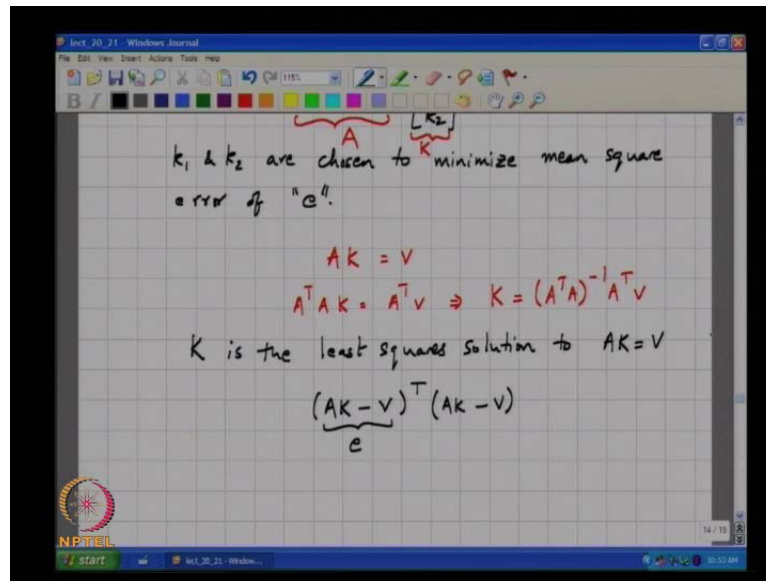 lect_20_21 - Windows Journal
File Edit View Insert Actions Tools Help
115%
B I
[k2]
A K
k1 & k2 are chosen to minimize mean square
error of "e".
AK = V
A^T AK = A^T V ⇒ K = (A^T A)^-1 A^T V
K is the least squares solution to AK = V
(AK - V)^T (AK - V)
e
NPTEL
14 / 15
start
lect_20_21 - Window...
10:53 AM